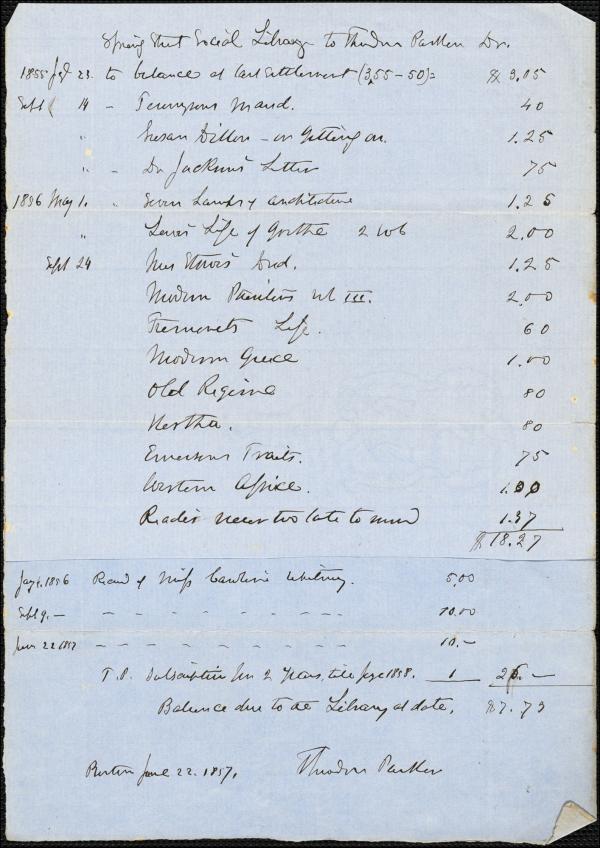 Spring Street Social Library to Theodore Parker Dr.
1855 July 23. to balance at last settlement (3,55-50)= $ 3.05
Sept 14 - Tennysons Maud. 40
" Susan Dillon - on Getting on. 1.25
" - Dr Jacksons Letter 75
1856 May 1. " Seven Lamps of architecture 1.25
" Lewes' Life of Goethe 2 vols 2.00
Sept 24 Mrs Dred. 1.25
Modern Painters vol III. 2.00
Life. 60
Modern Greece 1.00
Old Regime 80
Hertha. 80
Emersons Traits. 75
Western Africa. 1.00
Reades never too late to mend 1.37
$ 18.27
1856 Recd of Miss Caroline Whitney. 5,00
Sept 9. - - - - - 10.00
June 22 1857 - - - - - 10.-
T.P. Subscription for 2 years, till July 1858. 1 26.-
Balance due to the Library at date, $7.73
Boston June 22. 1857. Theodore Parker